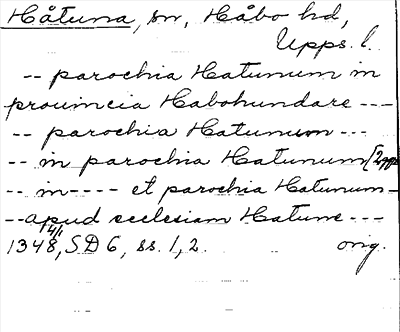 Håtuna, sn, Håbo hd,
Upps. l.
-- parochia Hatunum in
prouincia Habohundare ---
-- parochia Hatunum ---
-- in parochia Hatunum (2 ggr)
-- in ---- et parochia Hatunum -
-- apud ecclesiam Hatune ---
1348 14/1, SD 6, ss. 1, 2. orig.